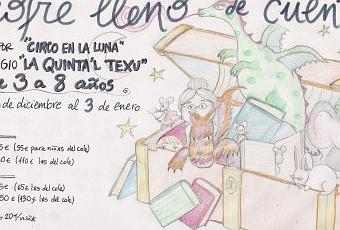 cofre lleno de cuen
POR "CIRCO EN LA LUNA"
GIO "LA QUINTA'L TEXU"
e 3 a 8 años
de diciembre al 3 de enero
5€ (55€ para niñas del cole)
0€ (110€ las del cole)
5€ (65€ las del cole)
50€ (130€ las del cole)
20€/niñx